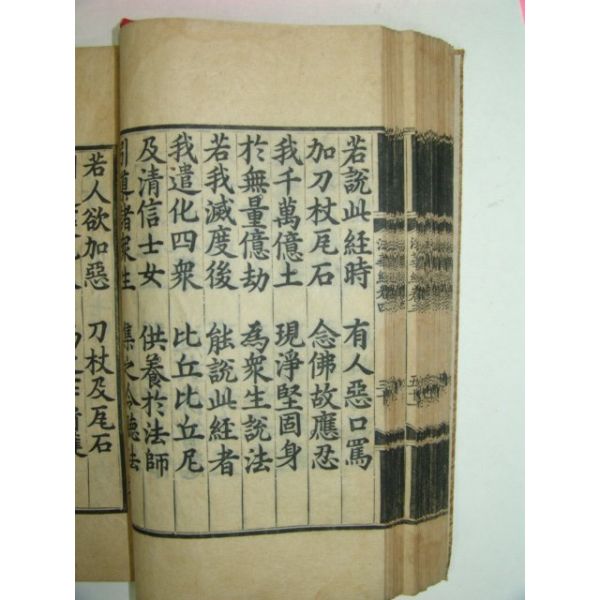 若說此経時 有人惡口罵
加刀杖瓦石 念佛故應忍
我千萬億土 現淨堅固身
於無量億劫 為衆生說法
若我滅度後 能說此經者
我遣化四衆 比丘比丘尼
及清信士女 供養於法師
引導諸衆生 集之令聽法
若人欲加惡 刀杖及瓦石